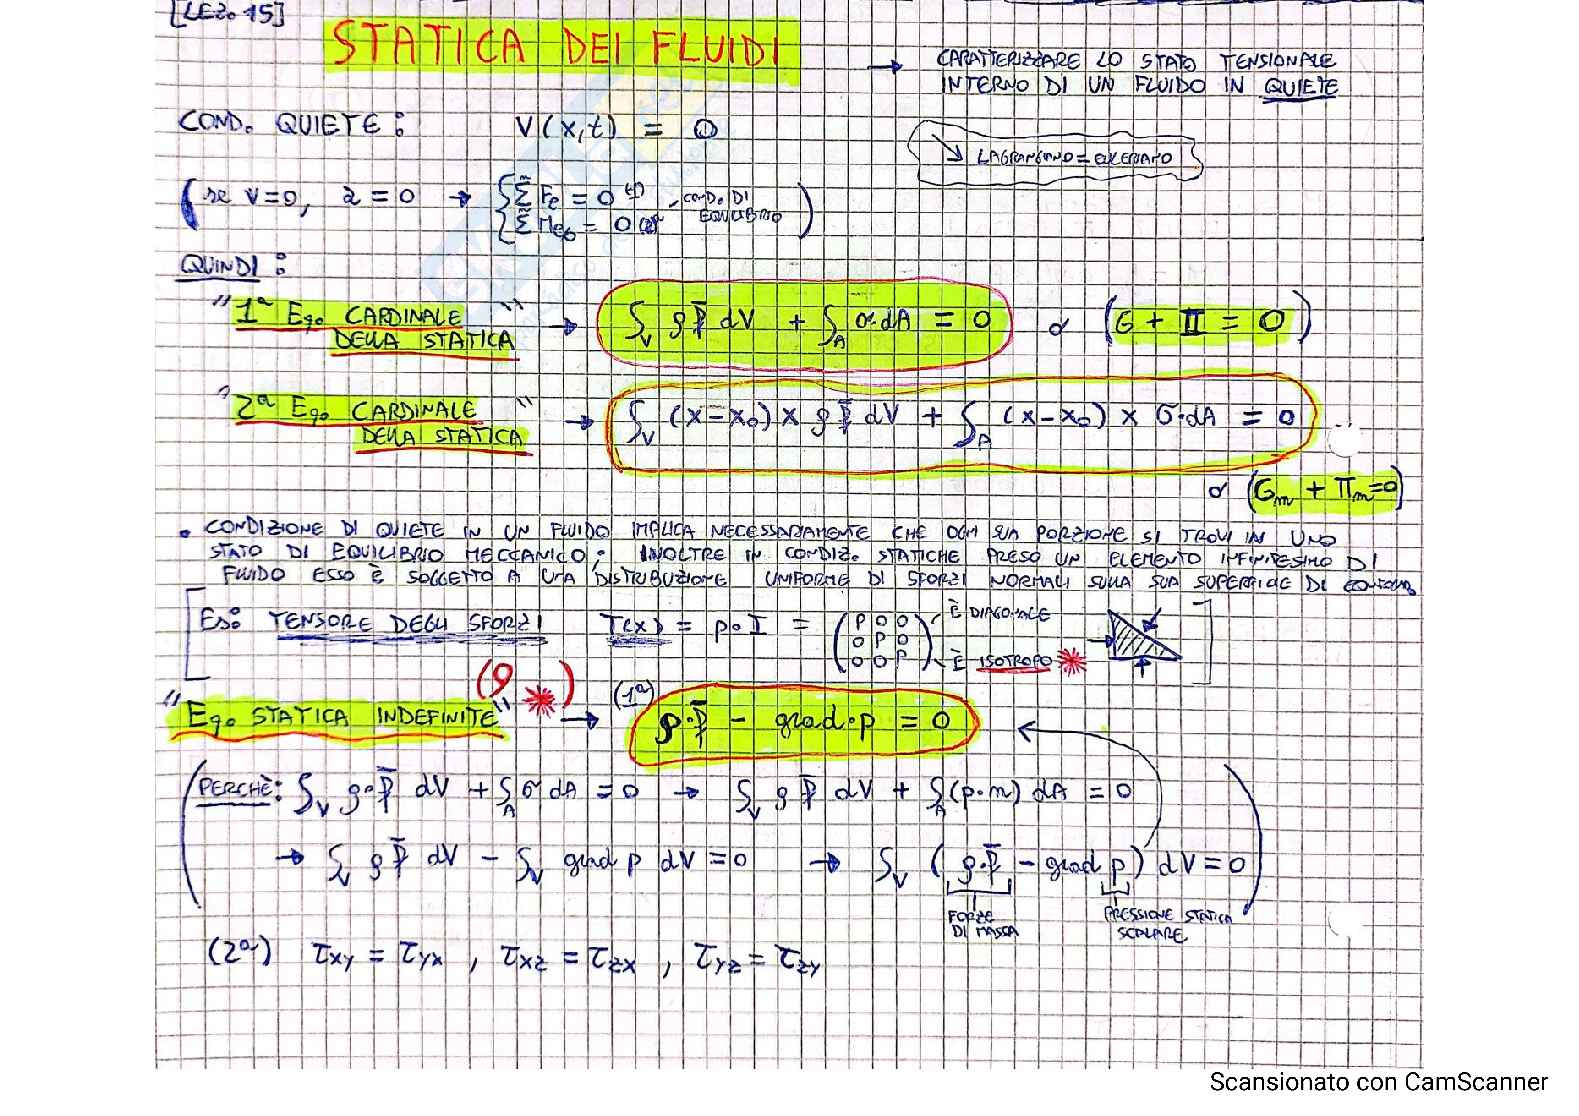 [LEZ. 15]
STATICA DEI FLUIDI
→ CARATTERIZZARE LO STATO TENSIONALE
INTERNO DI UN FLUIDO IN QUIETE
COND. QUIETE: V(x,t) = 0
↘ LAGRANGIANO = EULERIANO
(se v=0, a=0 → { Σ Fe = 0 (1) , COND. DI
Σ Me₀ = 0 (2) EQUILIBRIO )
QUINDI:
"1ª Eq. CARDINALE
DELLA STATICA" → ∫V ρF̄ dV + ∫A σ dA = 0 o (G + Π = 0)
"2ª Eq. CARDINALE
DELLA STATICA" → ∫V (x-x₀) x ρF̄ dV + ∫A (x-x₀) x σ·dA = 0
o (Gm + Πm=0)
• CONDIZIONE DI QUIETE IN UN FLUIDO IMPLICA NECESSARIAMENTE CHE OGNI SUA PORZIONE SI TROVI IN UNO
STATO DI EQUILIBRIO MECCANICO; INOLTRE IN CONDIZ. STATICHE PRESO UN ELEMENTO INFINITESIMO DI
FLUIDO ESSO È SOGGETTO A UNA DISTRIBUZIONE UNIFORME DI SFORZI NORMALI SULLA SUA SUPERFICIE DI CONTORNO
[ES: TENSORE DEGLI SFORZI T(x) = p·I = (P 0 0 È DIAGONALE
0 P 0
0 0 P) È ISOTROPO ]
"Eq. STATICA INDEFINITE" → (1ª) ρ·F̄ - grad·p = 0
(PERCHÈ: ∫V ρ·F̄ dV + ∫A σ dA = 0 → ∫V ρF̄ dV + ∫A (p·m) dA = 0
→ ∫V ρF̄ dV - ∫V grad p dV = 0 → ∫V (ρ·F̄ - grad p) dV = 0)
FORZE
DI MASSA
PRESSIONE STATICA
SCALARE
(2ª) τxy = τyx , τxz = τzx , τyz = τzy
Scansionato con CamScanner